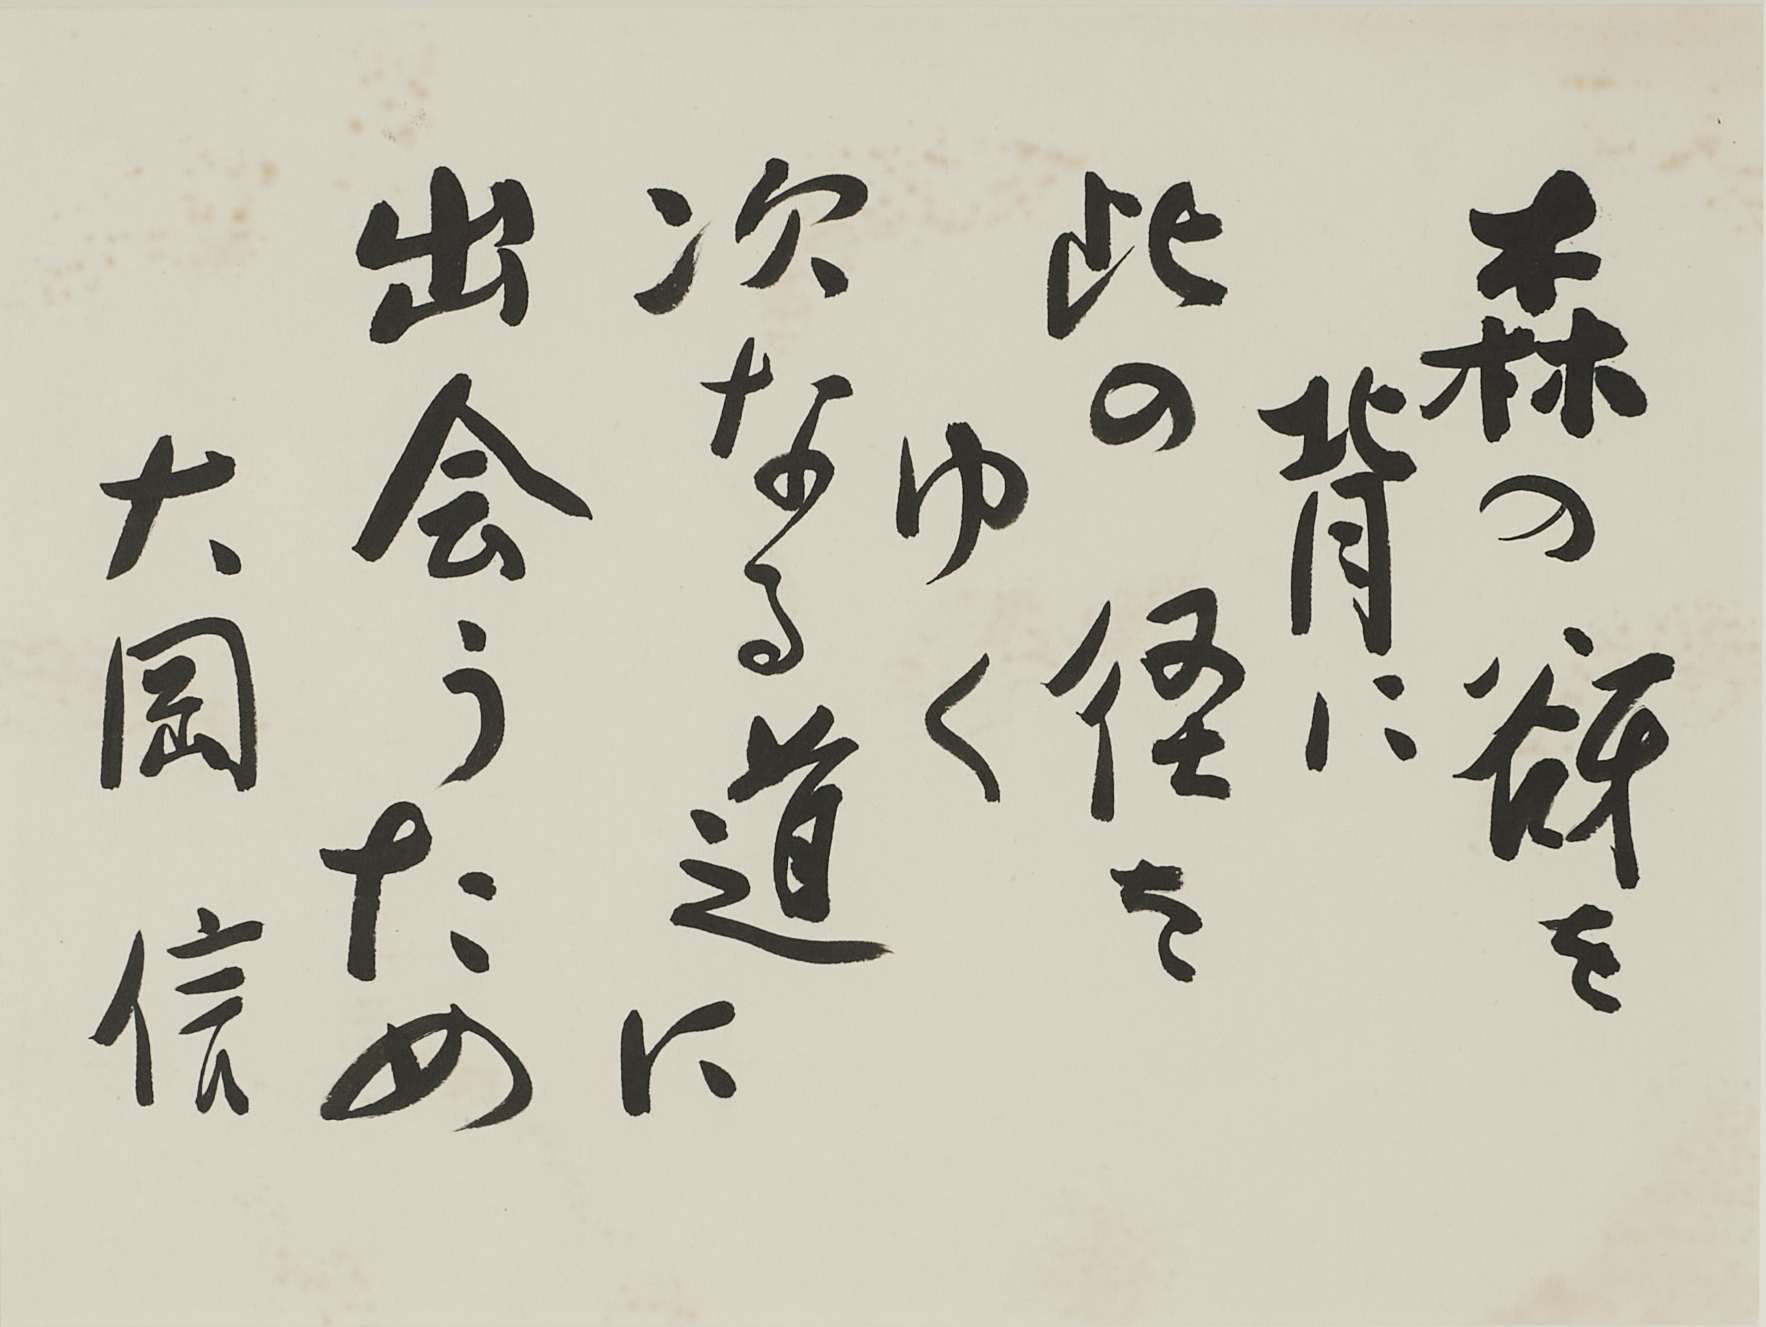 森の谺を
背に
此の径を
ゆく
次なる道に
出会うため
大岡信